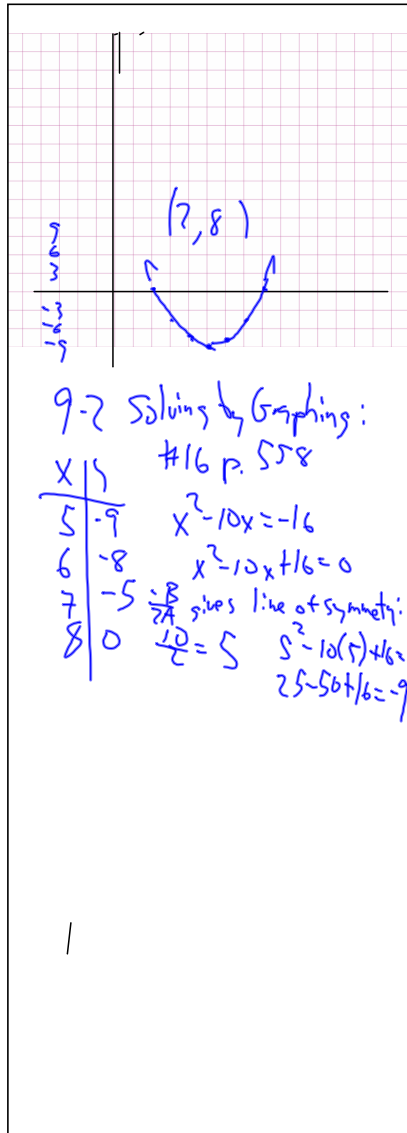 (2, 8)
9
6
3
-3
-6
-9
9-2 Solving by Graphing:
#16 p. 558
x | y
5 | -9 x²-10x=-16
6 | -8 x²-10x+16=0
7 | -5 -B/2A gives line of symmety:
8 | 0 10/2 = 5 5²-10(5)+16=
25-50+16=-9